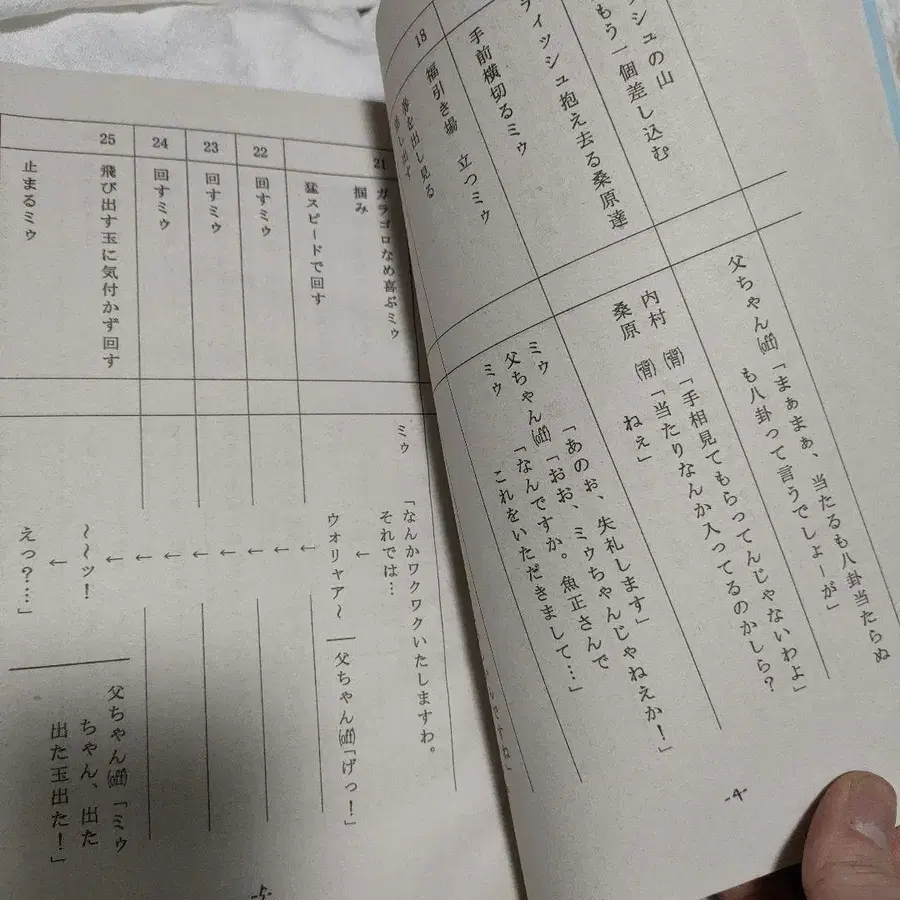 シュの山
もう一個差し込む
父ちゃん(off)「まぁまぁ、当たるも八卦当たらぬ
も八卦って言うでしょーが」
ィッシュ抱え去る桑原達
内村 (背)「手相見てもらってんじゃないわよ」
桑原 (背)「当たりなんか入ってるのかしら?
ねぇ」
手前横切るミゥ
18
福引き場 立つミゥ
券を出し見る
ミゥ 「あのぉ、失礼します」
父ちゃん(off)「おお、ミゥちゃんじゃねえか!」
ミゥ 「なんですか。魚正さんで
これをいただきまして…」
-4-
21
ガラゴロなめ喜ぶミゥ
掴み
猛スピードで回す
ミゥ 「なんかワクワクいたしますわ。
それでは…
ウォリャア~
父ちゃん(off)「げっ!」
22
回すミゥ
23
回すミゥ
24
回すミゥ
25
飛び出す玉に気付かず回す
止まるミゥ
~~ッ!
えっ?…」
父ちゃん(off)「ミゥ
ちゃん、出た
出た玉出た!」
-5-